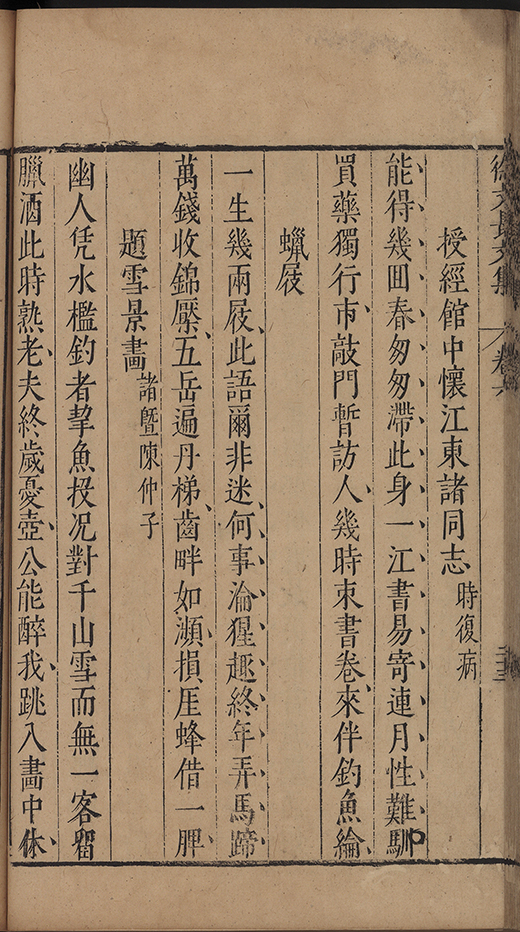 徐文長文集 卷六
授經館中懷江東諸同志 時復病
能得幾回春匆匆滯此身一江書易寄連月性難馴
買藥獨行市敲門暫訪人幾時束書卷來伴釣魚綸
蠟屐
一生幾兩屐此語爾非迷何事淪猩趣終年弄馬蹄
萬錢收錦屧五岳遍丹梯齒畔如瀕損厓蜂借一脾
題雪景畫 諸暨陳仲子
幽人凭水檻釣者挈魚投况對千山雪而無一客留
臘酒此時熟老夫終歲憂壺公能醉我跳入畫中休